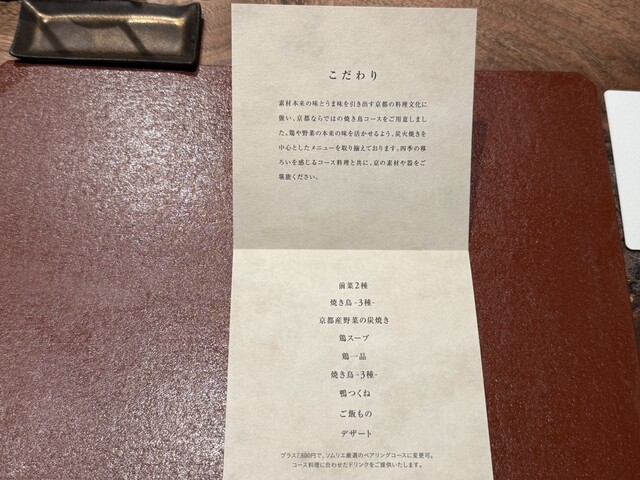 こだわり
素材本来の味とうま味を引き出す京都の料理文化に
倣い、京都ならではの焼き鳥コースをご用意しまし
た。鶏や野菜の本来の味を活かせるよう、炭火焼きを
中心としたメニューを取り揃えております。四季の移
ろいを感じるコース料理と共に、京の素材や器をご
堪能ください。
前菜2種
焼き鳥 -3種-
京都産野菜の炭焼き
鶏スープ
鶏一品
焼き鳥 -3種-
鴨つくね
ご飯もの
デザート
プラス7,800円で、ソムリエ厳選のペアリングコースに変更可。
コース料理に合わせたドリンクをご提供いたします。